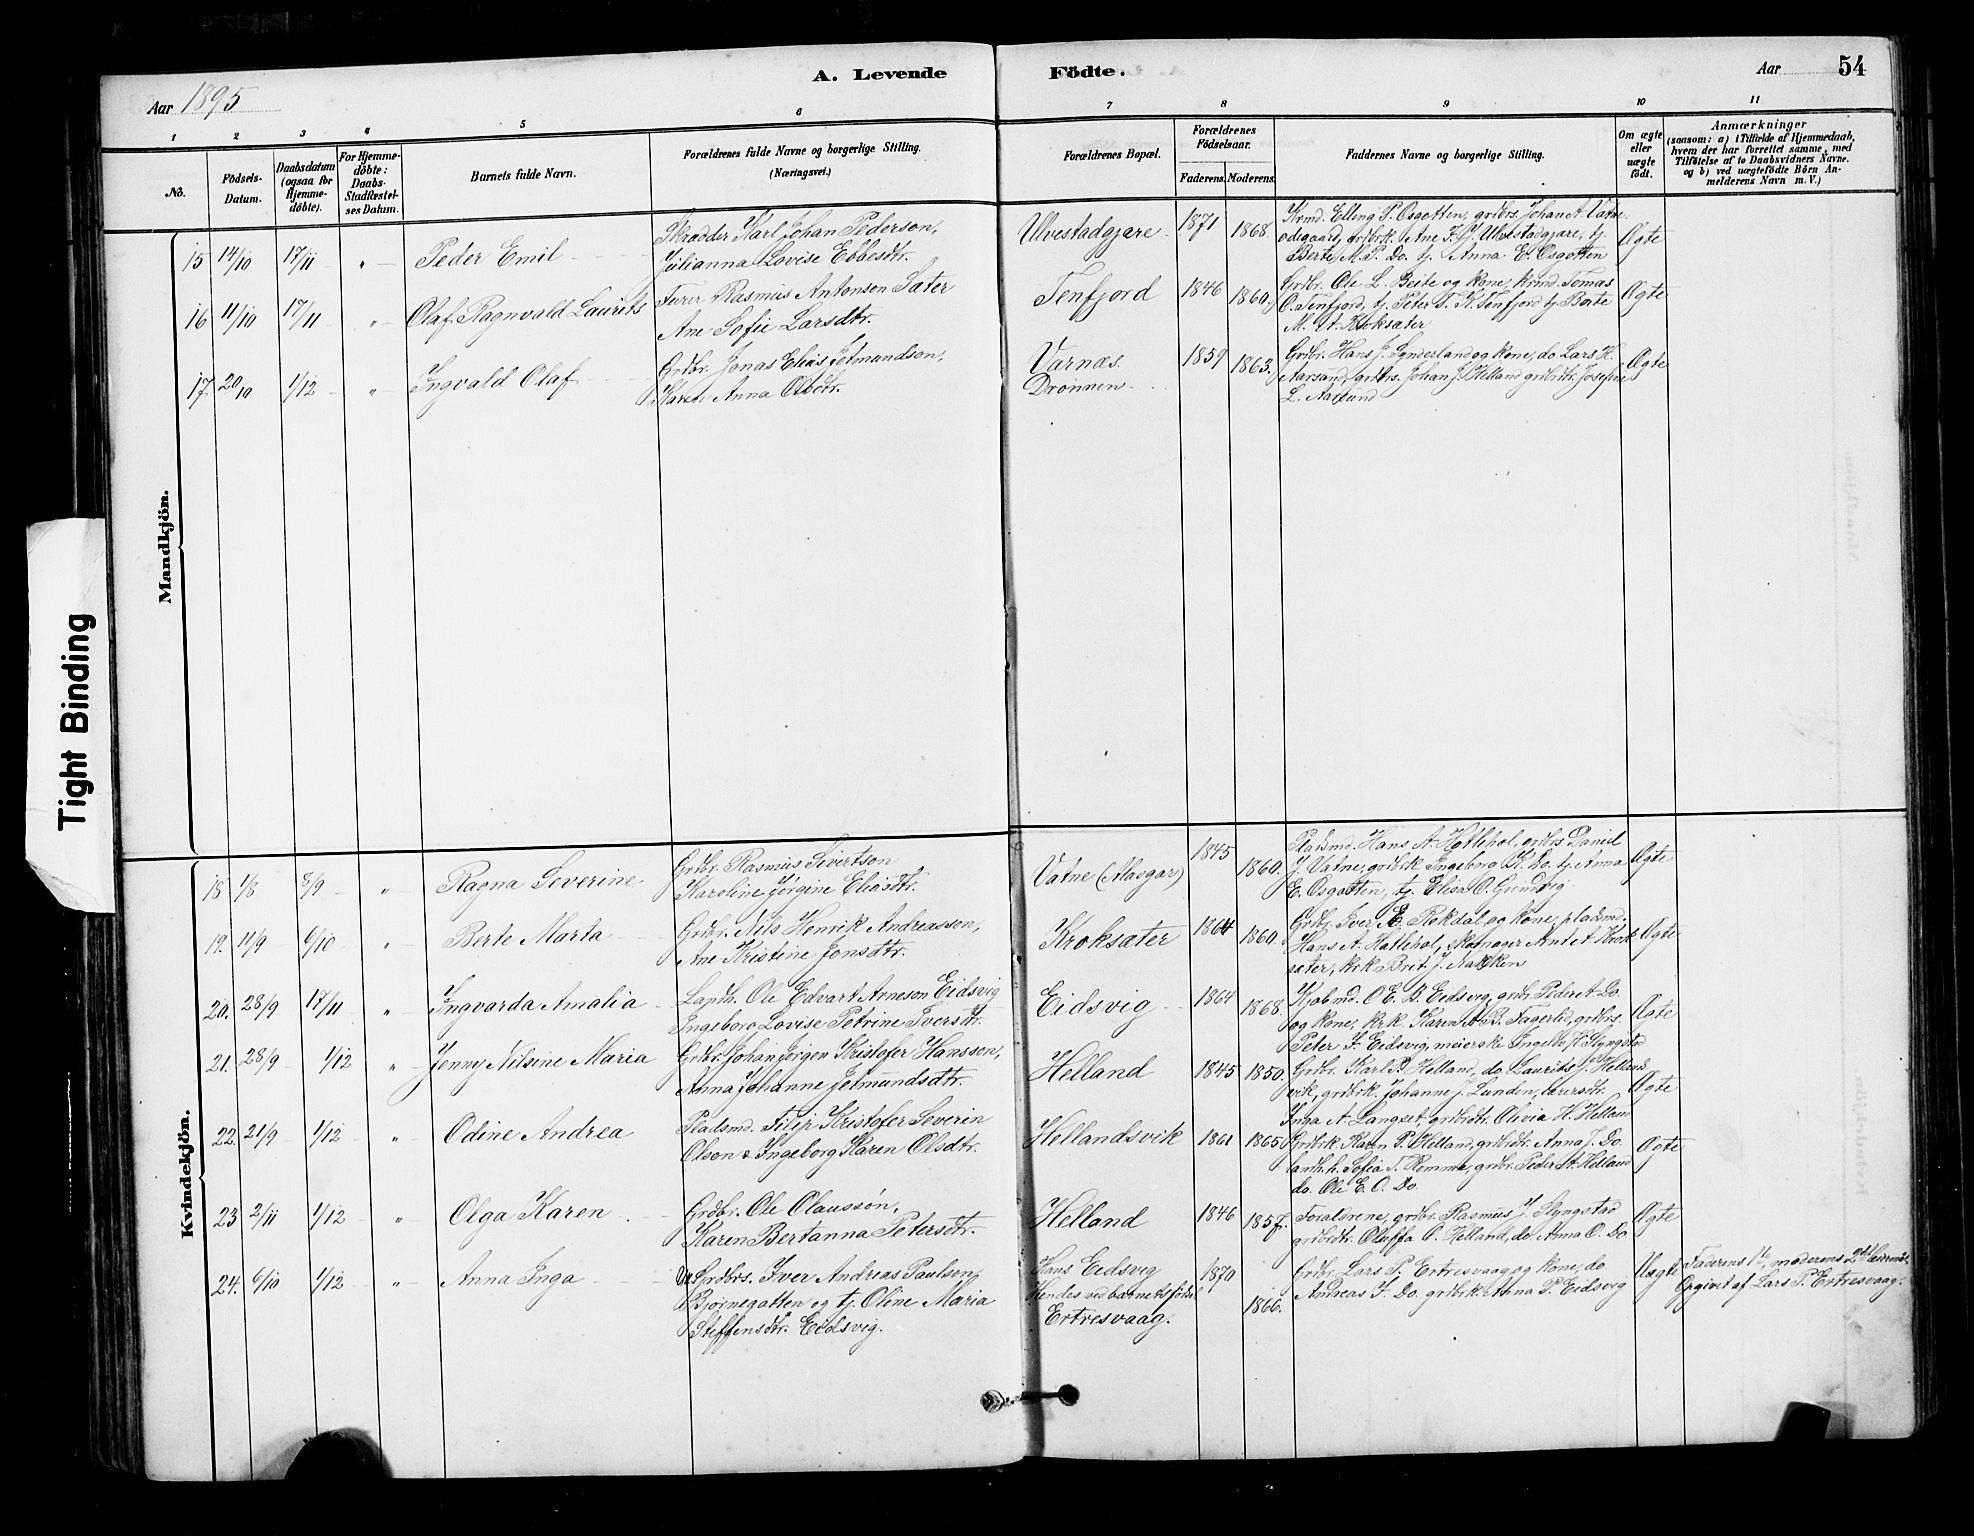 A. Levende Födte.
Aar 1895
Aar 54
1 2 3 4 5 6 7 8 9 10 11
No.
Födsels-Datum.
Daabsdatum (ogsaa for Hjemme-döbte).
For Hjemme-döbte: Daabs-Stadfæstel-ses Datum.
Barnets fulde Navn.
Forældrenes fulde Navne og borgerlige Stilling.
(Næringsvei.)
Forældrenes Bopæl.
Forældrenes Födselsaar.
Faderens. Moderens.
Faddernes Navne og borgerlige Stilling.
Om ægte eller uægte født.
Anmærkninger
(saasom: a) i Tilfælde af Hjemmedaab,
hvem der har forrettet samme, med
Tilföielse af to Daabsvidners Navne.
og b) ved uægtefödte Börn An-
melderens Navn m. V.)
Tight Binding
Mandkjön.
15 14/10 17/11 " Peder Emil
Skrædder Karl Johan Pederson,
Julianna Lovise Ebbesdtr.
Ulvestadgjære 1871 1868.
Krmd. Elling P. Osgotten, grdbrs. Johan A. Vatne-
ødegaard, grdbrk. Ane F. J. Ulvestadgjære, tj.
Berte M. P. Do. tj. Anna E. Osgotten
Ægte
16 11/10 17/11 " Olaf Ragnvald Laurits
Furer Rasmus Antonson Sæter
Ane Sofie Larsdtr.
Tenfjord 1846 1860.
Grdbr. Ole L. Beite og Kone, Krmd. Tomas
O. Tenfjord, tj. Peter T. K. Tenfjord tj. Berte
M. A. Kroksæter
Ægte
17 20/10 1/12 " Ingvald Olaf
Grdbr. Jonas Elias Jetmundson,
Karen Anna Olsdtr.
Varnæs.
Drønnen 1859 1863.
Grdbr. Hans J. Synderland og Kone, do Lars H.
Aarsund, grdbrs. Johan J. Helland grdbrdtr. Josefine
L. Aarsund
Ægte
Kvindekjön.
18 1/8 8/9 " Ragna Severine
Grdbr. Rasmus Sivertson
Karoline Jørgine Eliasdtr.
Vatne (Alasgar) 1845 1860.
Pladsmd. Hans A. Hatlehol, grdbrs. Daniel
J. Vatne, grdbrk Ingeborg K. Do. tj. Anna
E. Osgotten, tj. Elisa O. Grindvig
Ægte
19. 11/9 6/10 " Berte Marta
Grdbr. Nils Henrik Andreasson,
Ane Kristine Jonsdtr.
Kroksæter 1864 1860.
Grdbr. Iver E. Rokdal og Kone, pladsmd.
Hans A. Hatlehol, skomager Arnt A. Krok-
sæter, krk Brit J. Nakken
Ægte
20. 28/9 17/11 " Ingvarda Amalia
Landh. Ole Edvart Arneson Eidsvig
Ingeborg Lovise Petrine Iversdtr.
Eidsvig 1864 1868.
Kjøbmd. O. E. B. Eidsvig, grdbr. Peder A. Do.
og Kone, krk. Karen A. B. Fagerlid, grdbrs.
Peter I. Eidsvig, meierske Ingebo. H. Slyngstad
Ægte
21. 28/9 1/12 " Jenny Nilsine Maria
Grdbr. Johan Jørgen Kristofer Hansson,
Anna Johanne Jetmundsdtr.
Helland 1845 1850.
Grdbr. Karl P. Helland, do. Laurits J. Hellands-
vik, grdbrk. Johanne J. Lunden, lærersdtr.
Inga A. Langset, grdbrdtr. Olivia H. Helland
Ægte
22. 21/9 1/12 " Odine Andrea
Pladsmd. Filip Kristofer Severin
Olson & Ingeborg Karen Olsdtr.
Hellandsvik 1861 1865.
Grdbrk. Karen P. Helland, grdbrdtr. Anna J. Do.
landh.k. Sofia T. Remme, grdbr. Peder A. Helland
do. Ole E. O. Do.
Ægte
23 2/11 1/12 " Olga Karen
Grdbr. Ole Olausson,
Karen Bertanna Petersdtr.
Helland 1846 1857.
Forældrene, grdbr. Rasmus J. Slyngstad
grdbrdtr. Oluffa O. Helland, do Anna O. Do
Ægte
24. 6/10 1/12 " Anna Inga
Grdbrs. Iver Andreas Paulson,
Bjørnegotten og tj. Oline Maria
Steffensdtr. Eidsvig.
Hans Eidsvig
Hendes ved barnets fødsel
Ertresvaag. 1870 1866.
Grdbr. Lars P. Ertresvaag og Kone, do.
Andreas I. Do. grdbrk. Anna P. Eidsvig
Uægte
Faderens 1ste, moderens 2det leiermål.
Opgivet af Lars P. Ertresvaag.